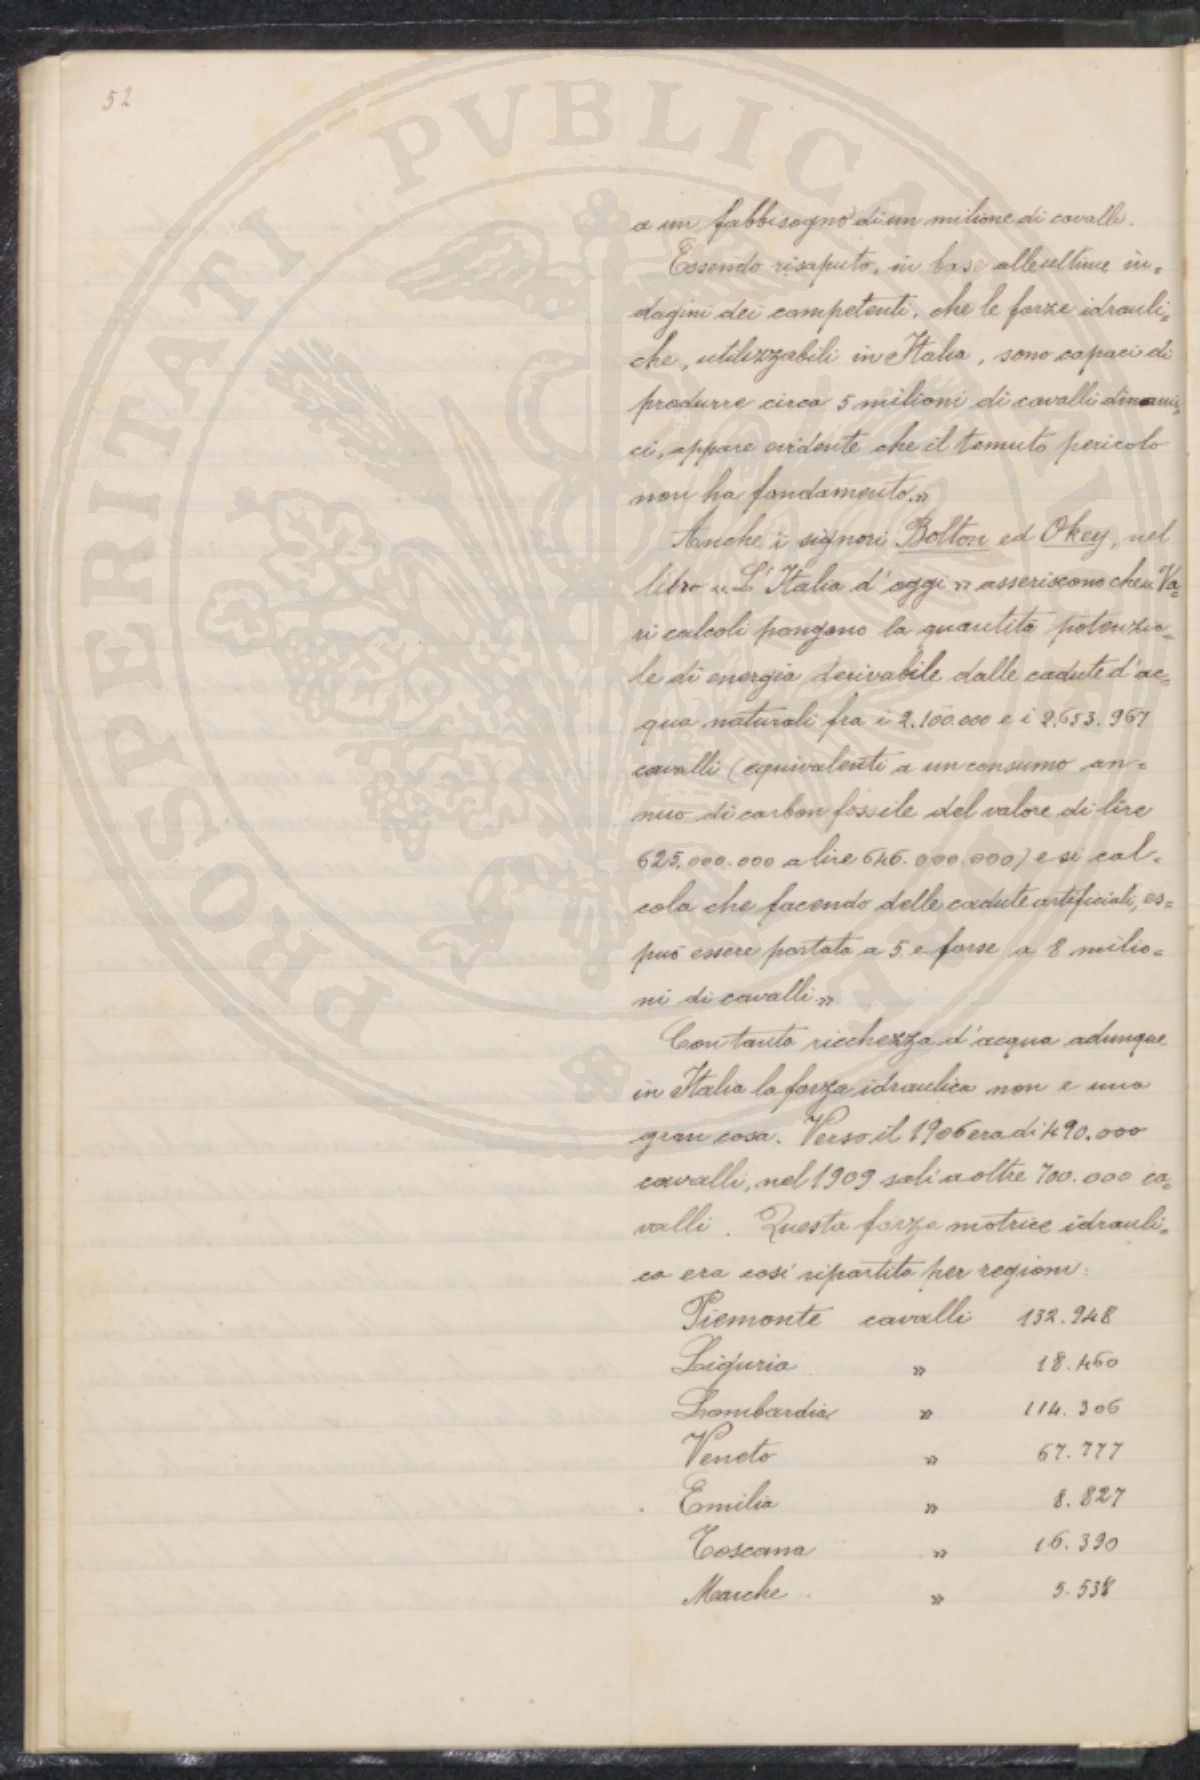 52
PROSPERITATI PVBLICAE
a un fabbisogno di un milione di cavalli.
Essendo risaputo, in base alle ultime in=
dagini dei competenti, che le forze idrauli=
che, utilizzabili in Italia, sono capaci di
produrre circa 5 milioni di cavalli dinami=
ci, appare evidente che il temuto pericolo
non ha fondamento.»
Anche i signori Bolton ed Okey, nel
libro «L'Italia d'oggi» asseriscono che «Va=
ri calcoli pongono la quantità potenzia=
le di energia derivabile dalle cadute d'ac=
qua naturali fra i 2.100.000 e i 2.653.967
cavalli (equivalenti a un consumo an=
nuo di carbon fossile del valore di lire
625.000.000 a lire 646.000.000) e si cal=
cola che facendo delle cadute artificiali, es=
può essere portata a 5 e forse a 8 milio=
ni di cavalli.»
Con tanta ricchezza d'acqua adunque
in Italia la forza idraulica non e una
gran cosa. Verso il 1906 era di 490.000
cavalli, nel 1909 salì a oltre 700.000 ca=
valli. Questa forza motrice idrauli=
ca era così ripartita per regioni:
Piemonte cavalli 132.948
Liguria » 18.460
Lombardia » 114.306
Veneto » 67.777
Emilia » 8.827
Toscana » 16.390
Marche » 5.538